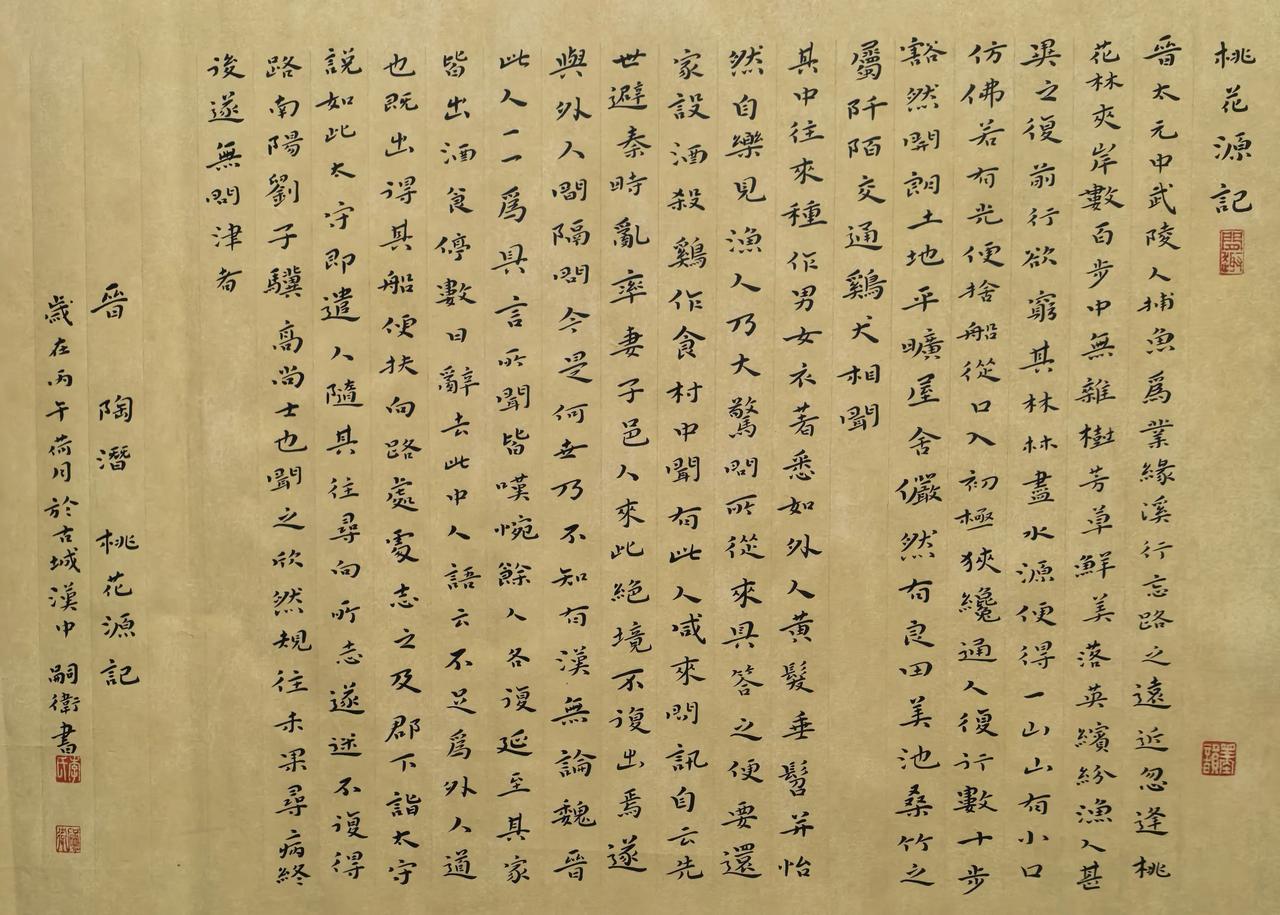 桃花源記
晉太元中武陵人捕魚爲業緣溪行忘路之遠近忽逢桃
花林夾岸數百步中無雜樹芳草鮮美落英繽紛漁人甚
異之復前行欲窮其林林盡水源便得一山山有小口
仿佛若有光便捨船從口入初極狹纔通人復行數十步
豁然開朗土地平曠屋舍儼然有良田美池桑竹之
屬阡陌交通鷄犬相聞
其中往來種作男女衣著悉如外人黃髮垂髫并怡
然自樂見漁人乃大驚問所從來具答之便要還
家設酒殺鷄作食村中聞有此人咸來問訊自云先
世避秦時亂率妻子邑人來此絕境不復出焉遂
與外人間隔問今是何世乃不知有漢無論魏晉
此人一一爲具言所聞皆嘆惋餘人各復延至其家
皆出酒食停數日辭去此中人語云不足爲外人道
也既出得其船便扶向路處處志之及郡下詣太守
說如此太守即遣人隨其往尋向所志遂迷不復得
路南陽劉子驥高尚士也聞之欣然規往未果尋病終
後遂無問津者
晉 陶潛 桃花源記
歲在丙午荷月於古城漢中 嗣衛書
李氏
墨韻